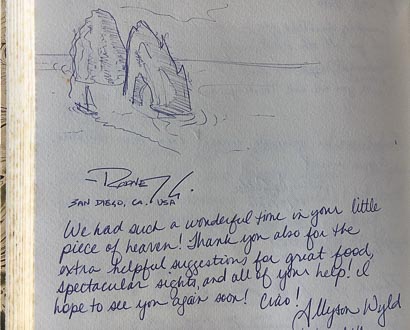 -Rodney L.
SAN DIEGO, CA. USA
We had such a wonderful time in your little
piece of heaven! Thank you also for the
extra helpful suggestions for great food,
spectacular sights, and all of your help! I
hope to see you again soon! Ciao!
Allyson Wyld